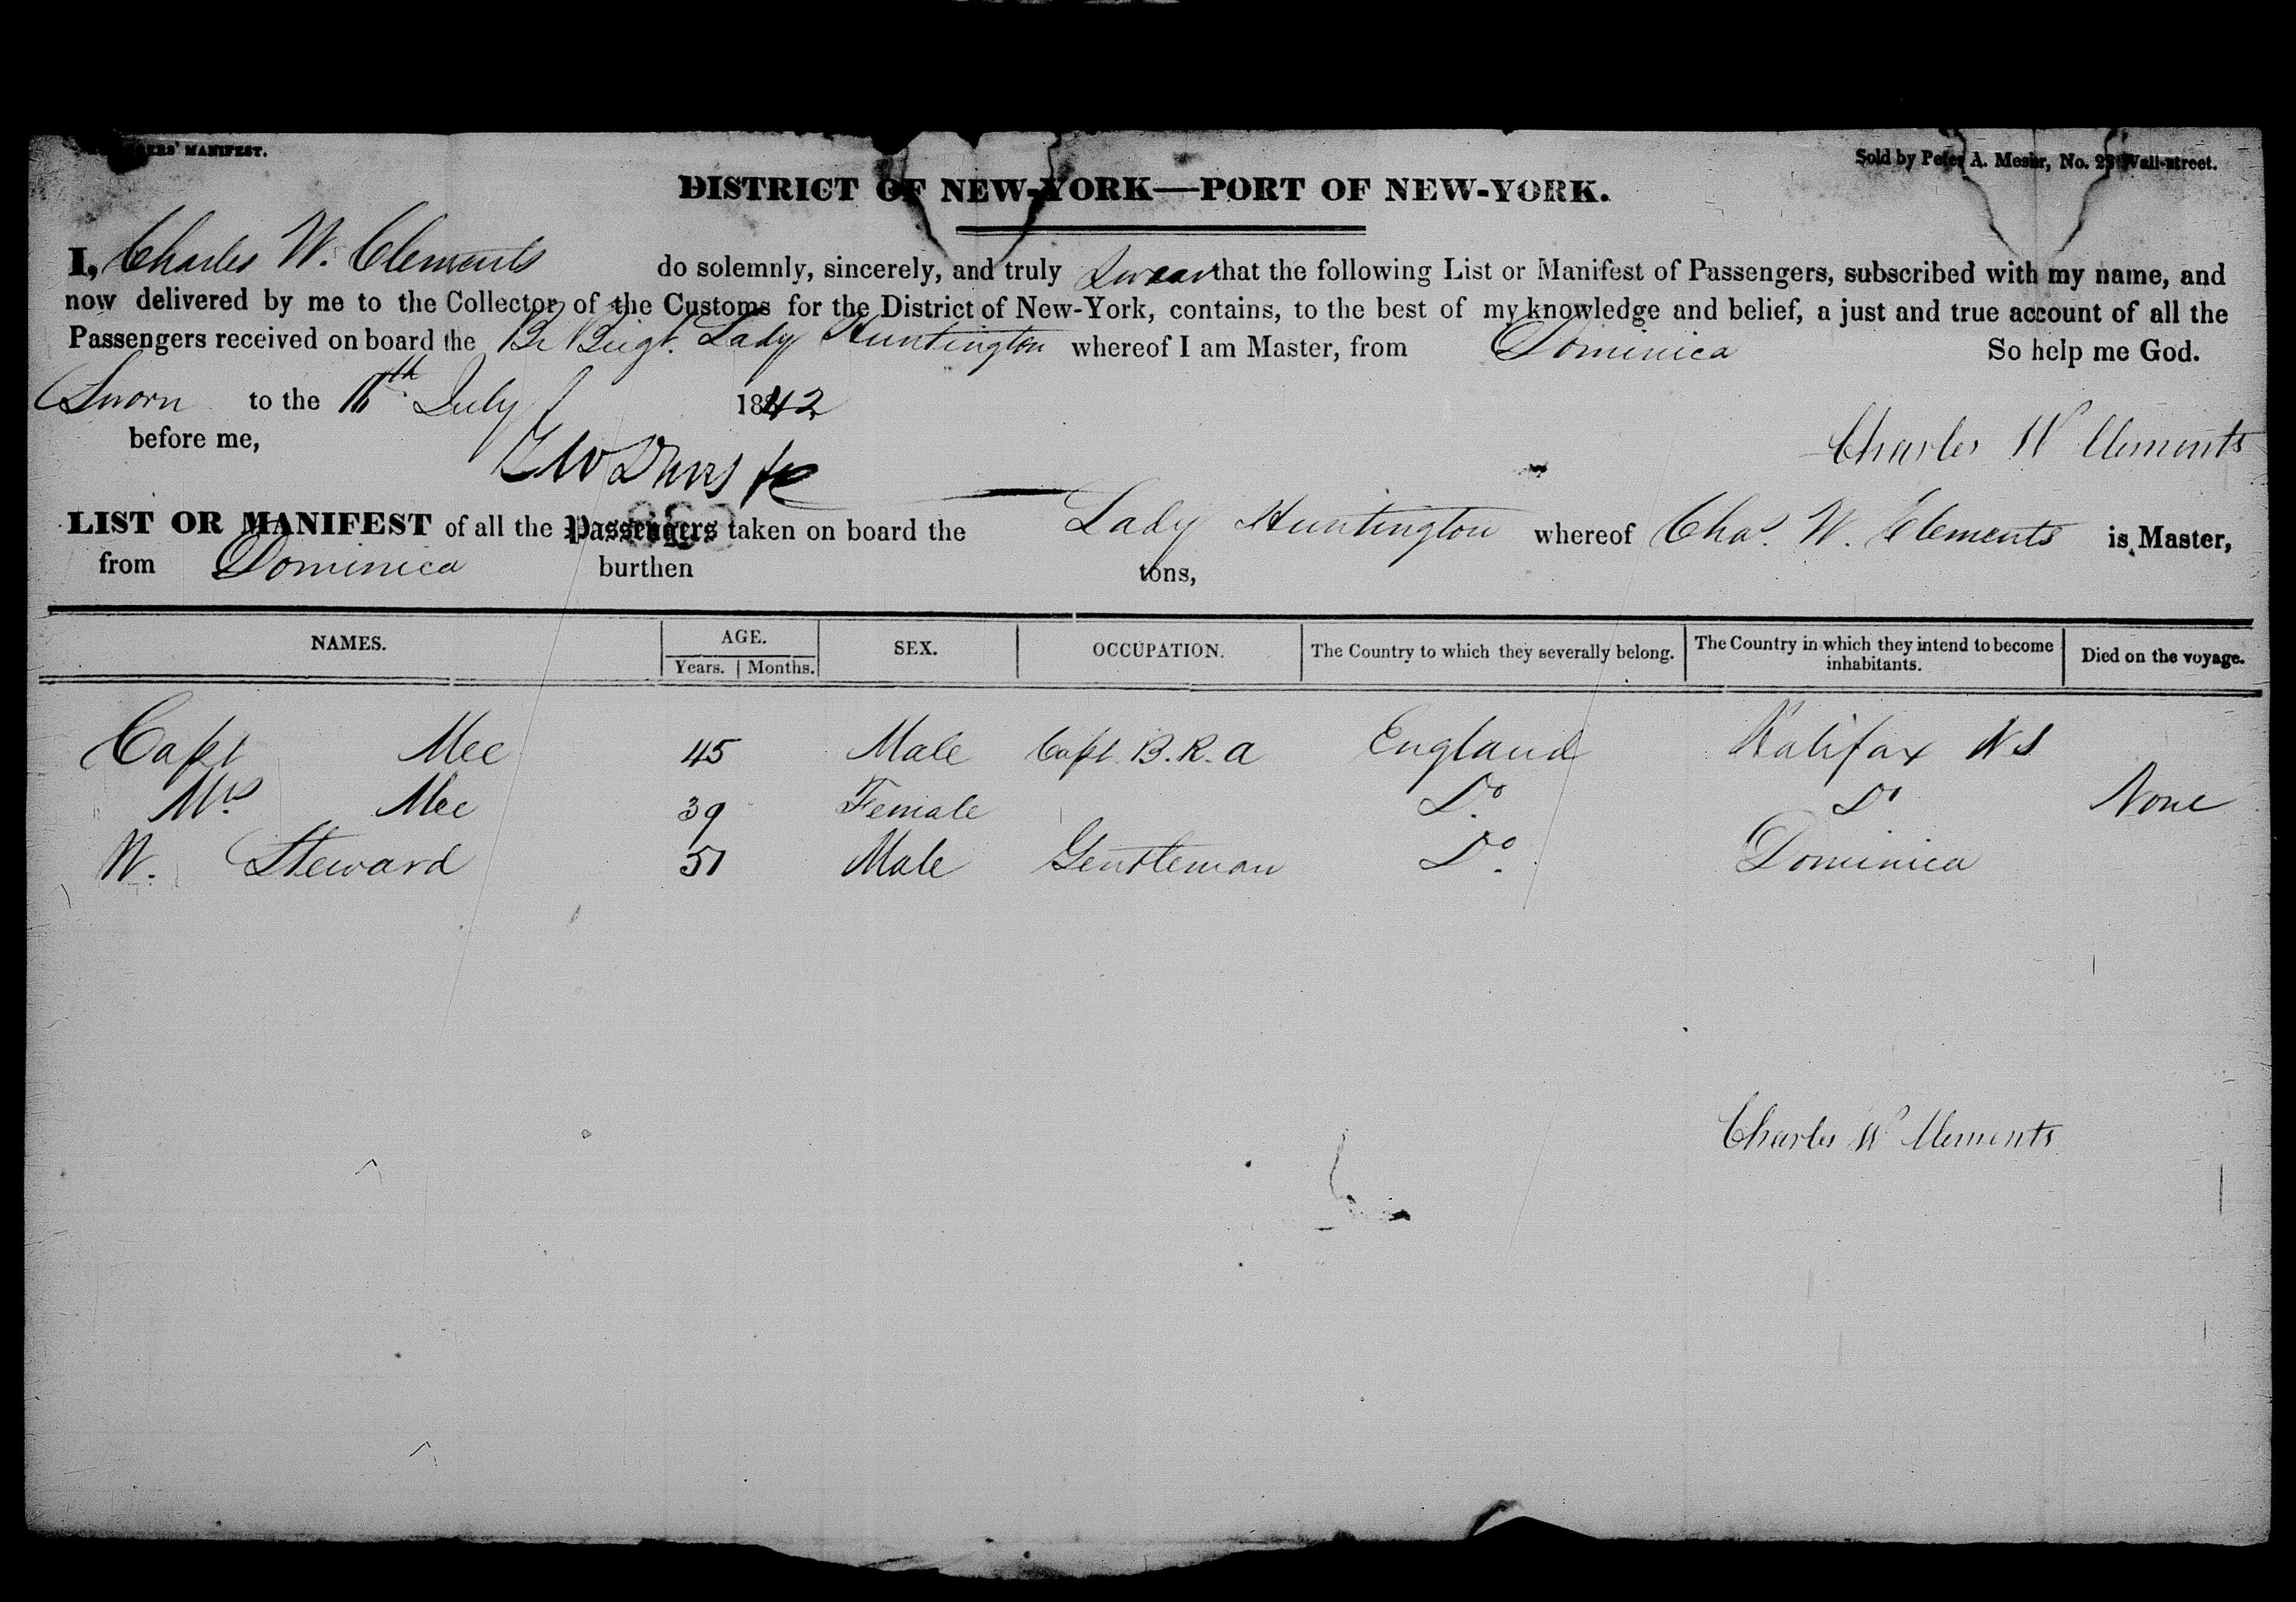 MANIFEST.
Sold by Peter A. Mesier, No. 28 Wall-street.
DISTRICT OF NEW-YORK—PORT OF NEW-YORK.
I, Charles W. Clements do solemnly, sincerely, and truly Swear that the following List or Manifest of Passengers, subscribed with my name, and
now delivered by me to the Collector of the Customs for the District of New-York, contains, to the best of my knowledge and belief, a just and true account of all the
Passengers received on board the Br Brigt. Lady Huntington whereof I am Master, from Dominica So help me God.
Sworn to the 11th July 1842
before me,
Charles W Clements
LIST OR MANIFEST of all the Passengers taken on board the Lady Huntington whereof Chas. W. Clements is Master,
from Dominica burthen tons,
NAMES. AGE. SEX. OCCUPATION. The Country to which they severally belong. The Country in which they intend to become inhabitants. Died on the voyage.
Years. Months.
Capt Mee 45 Male Capt. B. R. A England Halifax NS
Mrs. Mee 39 Female Do. Do None
W. Steward 51 Male Gentleman Do. Dominica
Charles W Clements